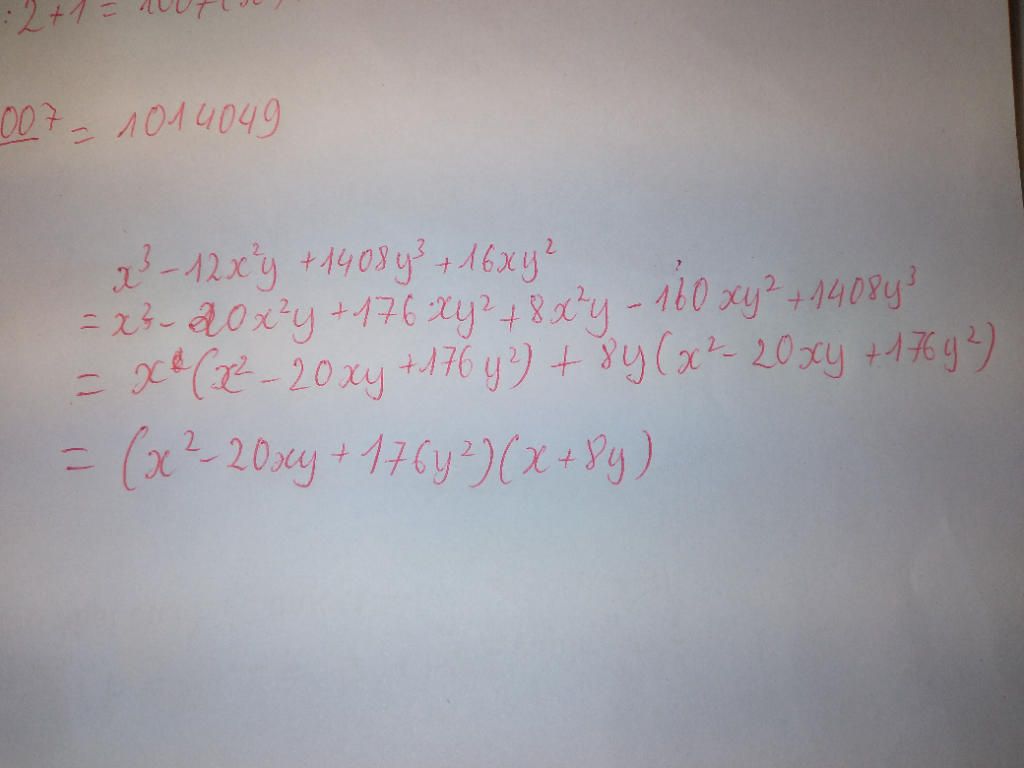 : 2 + 1 = 1007
007 = 1014049
x³ - 12x²y + 1408y³ + 16xy²
= x³ - 20x²y + 176xy² + 8x²y - 160xy² + 1408y³
= x(x² - 20xy + 176y²) + 8y(x² - 20xy + 176y²)
= (x² - 20xy + 176y²)(x + 8y)